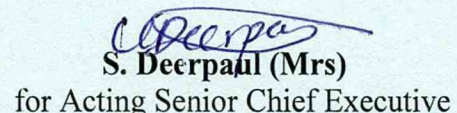 S. Deerpaul (Mrs)
for Acting Senior Chief Executive